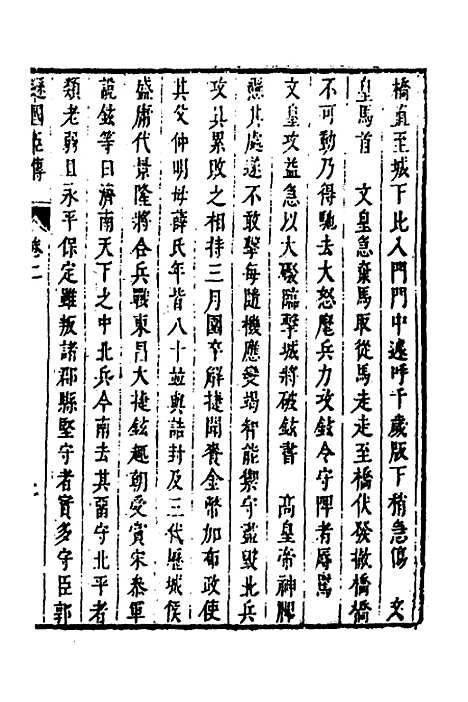 橋直至城下比入門門中遽呼千歲版下稍急傷　文
皇馬首　文皇急棄馬取從馬走走至橋伏發撤橋橋
不可動乃得馳去大怒麾兵力攻鉉令守陴者辱罵
文皇攻益急以大礮臨擊城將破鉉書　高皇帝神牌
懸其處遂不敢擊每隨機應變竭智能禦守盡毀北兵
攻具累敗之相持三月圍卒解捷聞賚金幣加布政使
其父仲明母薛氏年皆八十並與誥封及三代歷城侯
盛庸代景隆將合兵戰東昌大捷鉉趣朝受賞宋叅軍
說鉉等曰濟南天下之中北兵今南去其留守北平者
類老弱且永平保定雖叛諸郡縣堅守者實多守臣郭
遜國臣傳　卷二